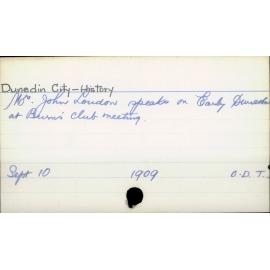 Dunedin City - History
Mr. John Loudon speaks on Early Dunedin
at Burns Club meeting.
Sept 10 1909 O.D.T.